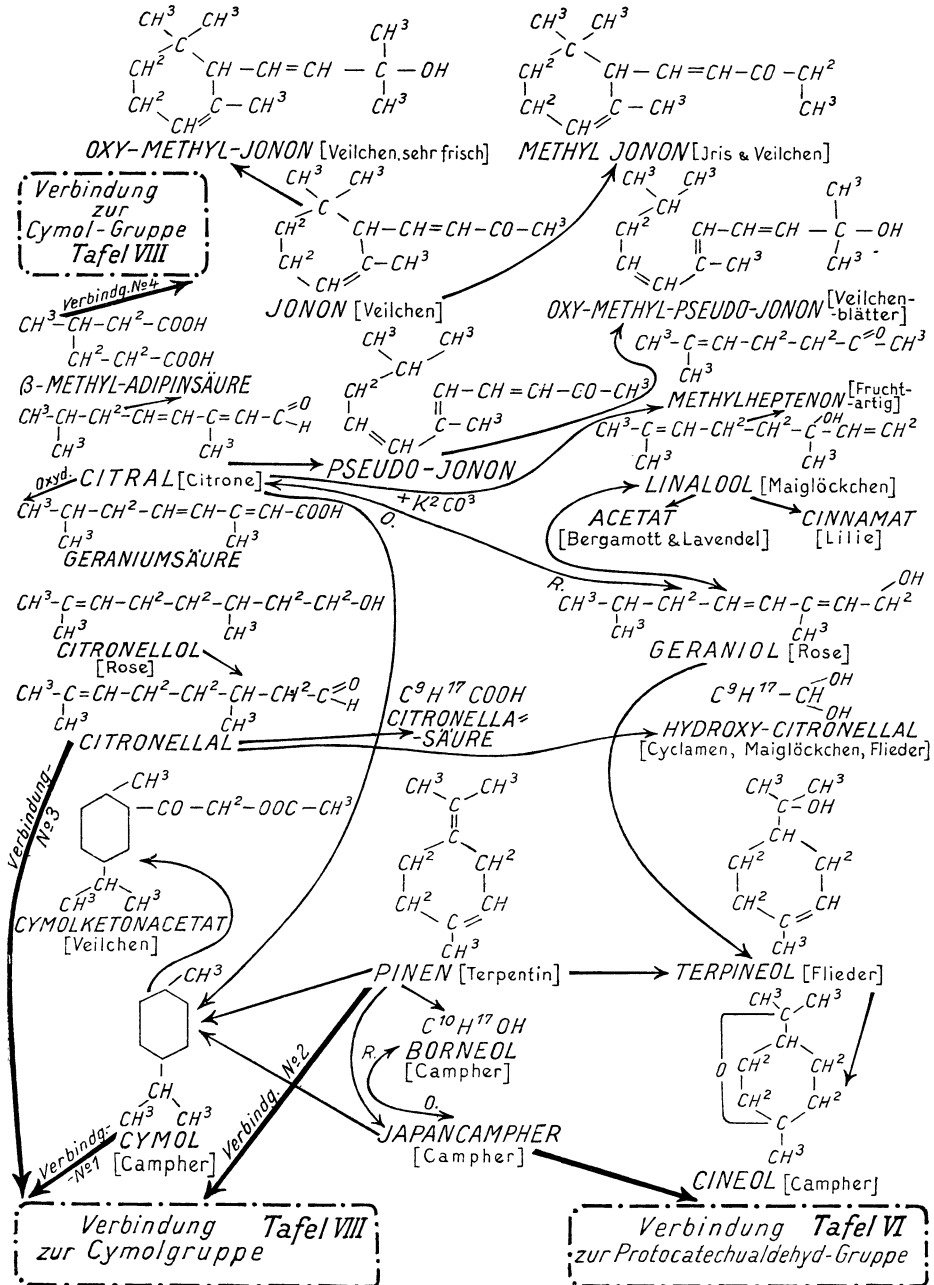 CH³ CH³ CH³
C
CH² CH – CH = CH – C – OH
CH² C – CH³ CH³
CH
OXY-METHYL-JONON [Veilchen, sehr frisch]
CH³ CH³
C
CH² CH – CH = CH – CO – CH²
CH² C – CH³ CH³
CH
METHYL JONON [Jris & Veilchen]
Verbindung
zur
Cymol-Gruppe
Tafel VIII
Verbindg. No4
CH³ CH³
C
CH² CH – CH = CH – CO – CH³
CH² C – CH³
CH
JONON [Veilchen]
CH³ CH³ CH³
CH
CH² CH – CH = CH – C – OH
CH C – CH³ CH³
CH
OXY-METHYL-PSEUDO-JONON [Veilchen-
-blätter]
CH³–CH–CH²–COOH
CH²–CH²–COOH
β-METHYL-ADIPINSÄURE
CH³ CH³
CH
CH² CH – CH = CH – CO – CH³
CH C – CH³
CH
PSEUDO-JONON
CH³–C=CH–CH²–CH²–C=O–CH³
CH³
METHYLHEPTENON [Frucht-
-artig]
CH³–CH–CH²–CH=CH–C=CH–C=O
H
CH³ CH³
CITRAL [Citrone]
Oxyd.
+K²CO³
O.
CH³–C=CH–CH²–CH²–C–CH=CH²
OH
CH³ CH³
LINALOOL [Maiglöckchen]
ACETAT
[Bergamott & Lavendel]
CINNAMAT
[Lilie]
CH³–CH–CH²–CH=CH–C=CH–COOH
CH³ CH³
GERANIUMSÄURE
R.
OH
CH³–CH–CH²–CH=CH–C=CH–CH²
CH³ CH³
GERANIOL [Rose]
CH³–C=CH–CH²–CH²–CH–CH²–CH²–OH
CH³ CH³
CITRONELLOL
[Rose]
CH³–C=CH–CH²–CH²–CH–CH²–C=O
H
CH³ CH³
CITRONELLAL
C⁹H¹⁷COOH
CITRONELLA=
-SÄURE
C⁹H¹⁷–CH OH
OH
HYDROXY-CITRONELLAL
[Cyclamen, Maiglöckchen, Flieder]
Verbindung-
No3
CH³
CO–CH²–OOC–CH³
CH
CH³ CH³
CYMOLKETONACETAT
[Veilchen]
CH³ CH³
C
C
CH² CH²
CH² CH
C
CH³
PINEN [Terpentin]
CH³ CH³
C–OH
CH
CH² CH²
CH² CH
C
CH³
TERPINEOL [Flieder]
CH³
CH
CH³ CH³
CYMOL
[Campher]
C¹⁰H¹⁷OH
BORNEOL
[Campher]
R.
O.
JAPANCAMPHER
[Campher]
CH³ CH³
C
CH
O CH² CH²
CH² CH²
C
CH³
CINEOL [Campher]
Verbindg-
-No1
Verbindg. No2
Verbindung Tafel VIII
zur Cymolgruppe
Verbindung Tafel VI
zur Protocatechualdehyd-Gruppe